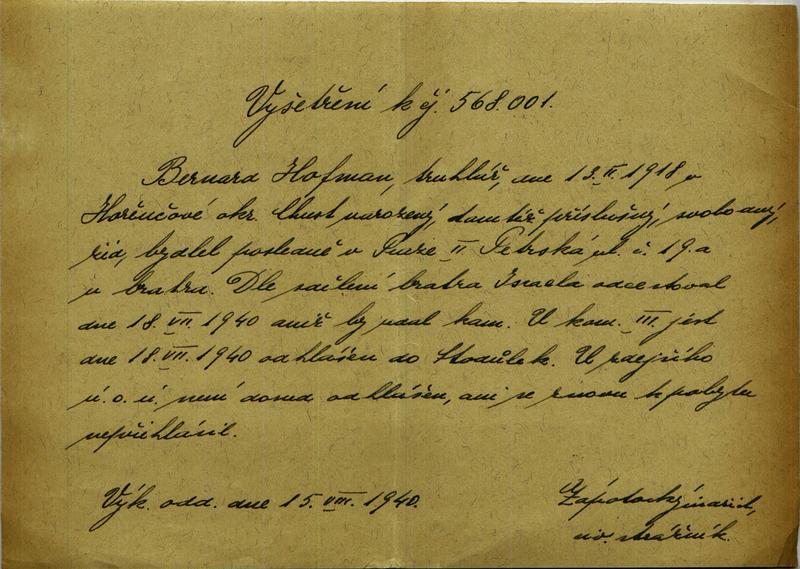 Vyšetření k čj. 568.001.
Bernard Hofman, truhlář, dne 13.II.1918 v
Horěnčové okr. Chust narozený, tamtéž příslušný, svobodný,
žid, bydlel posledně v Praze II. Petrská ul. č. 19. a
u bratra. Dle sdělení bratra Israela odcestoval
dne 18.VII.1940 aniž by udal kam. U kom. III. jest
dne 18.VII.1940 odhlášen do Stodůlek. U zdejšího
ú. o. ú. není dosud odhlášen, ani se znovu k pobytu
nepřihlásil.
Výk. odd. dne 15.VIII.1940.
Zápotocký
str. strážník.